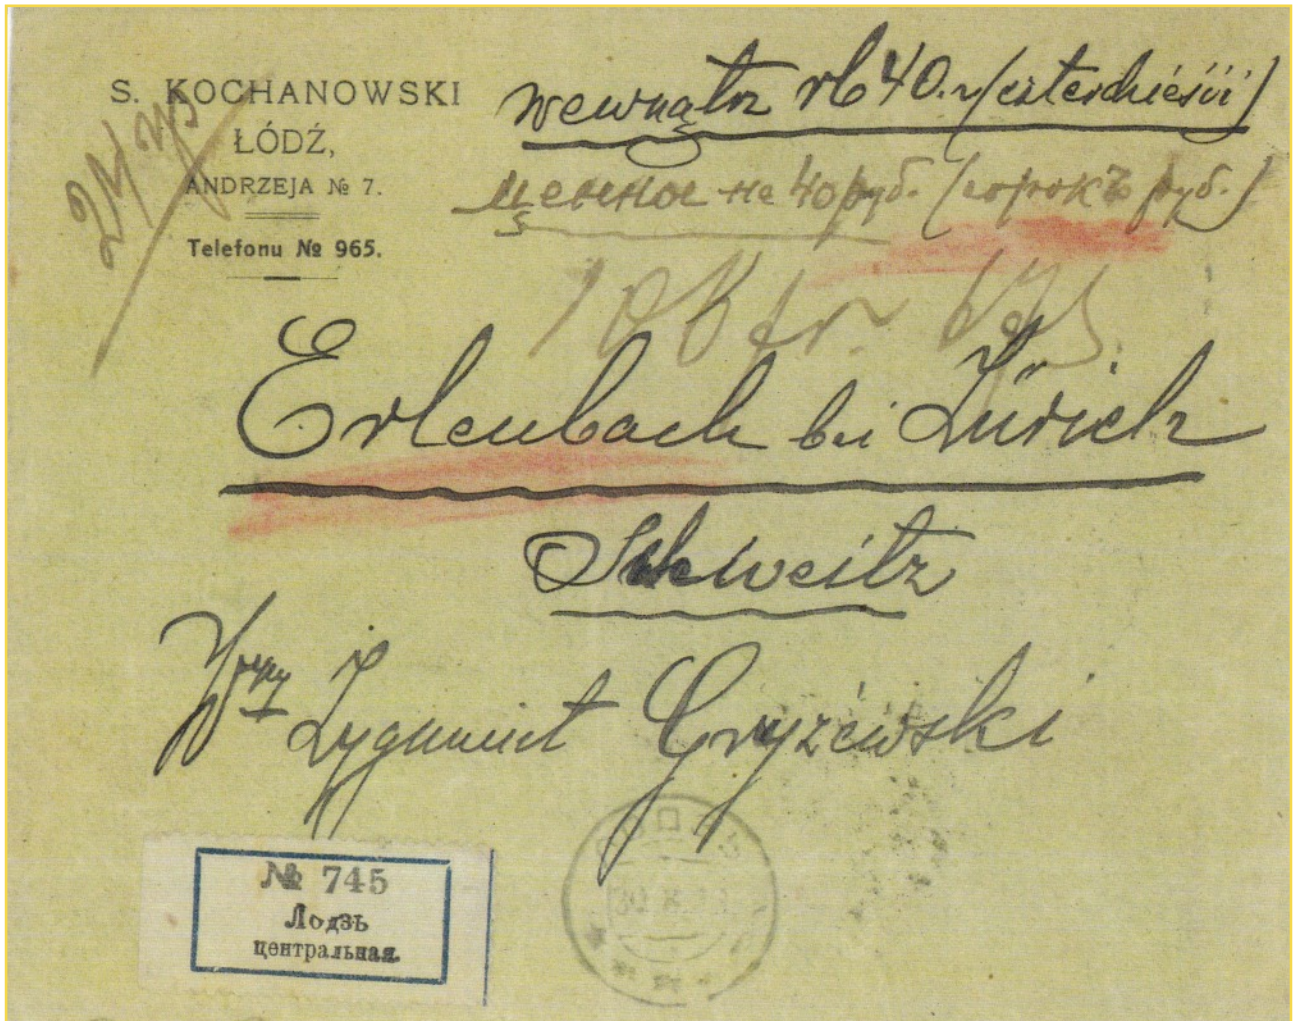 S. KOCHANOWSKI
ŁÓDŹ,
ANDRZEJA № 7.
Telefonu № 965.
wewnątrz rb 40.- (czterdzieści)
ценное на 40 руб. (сорокъ руб.)
Erlenbach bei Zürich
Schweitz
Zygmunt Gryżewski
№ 745
Лодзь
центральная.